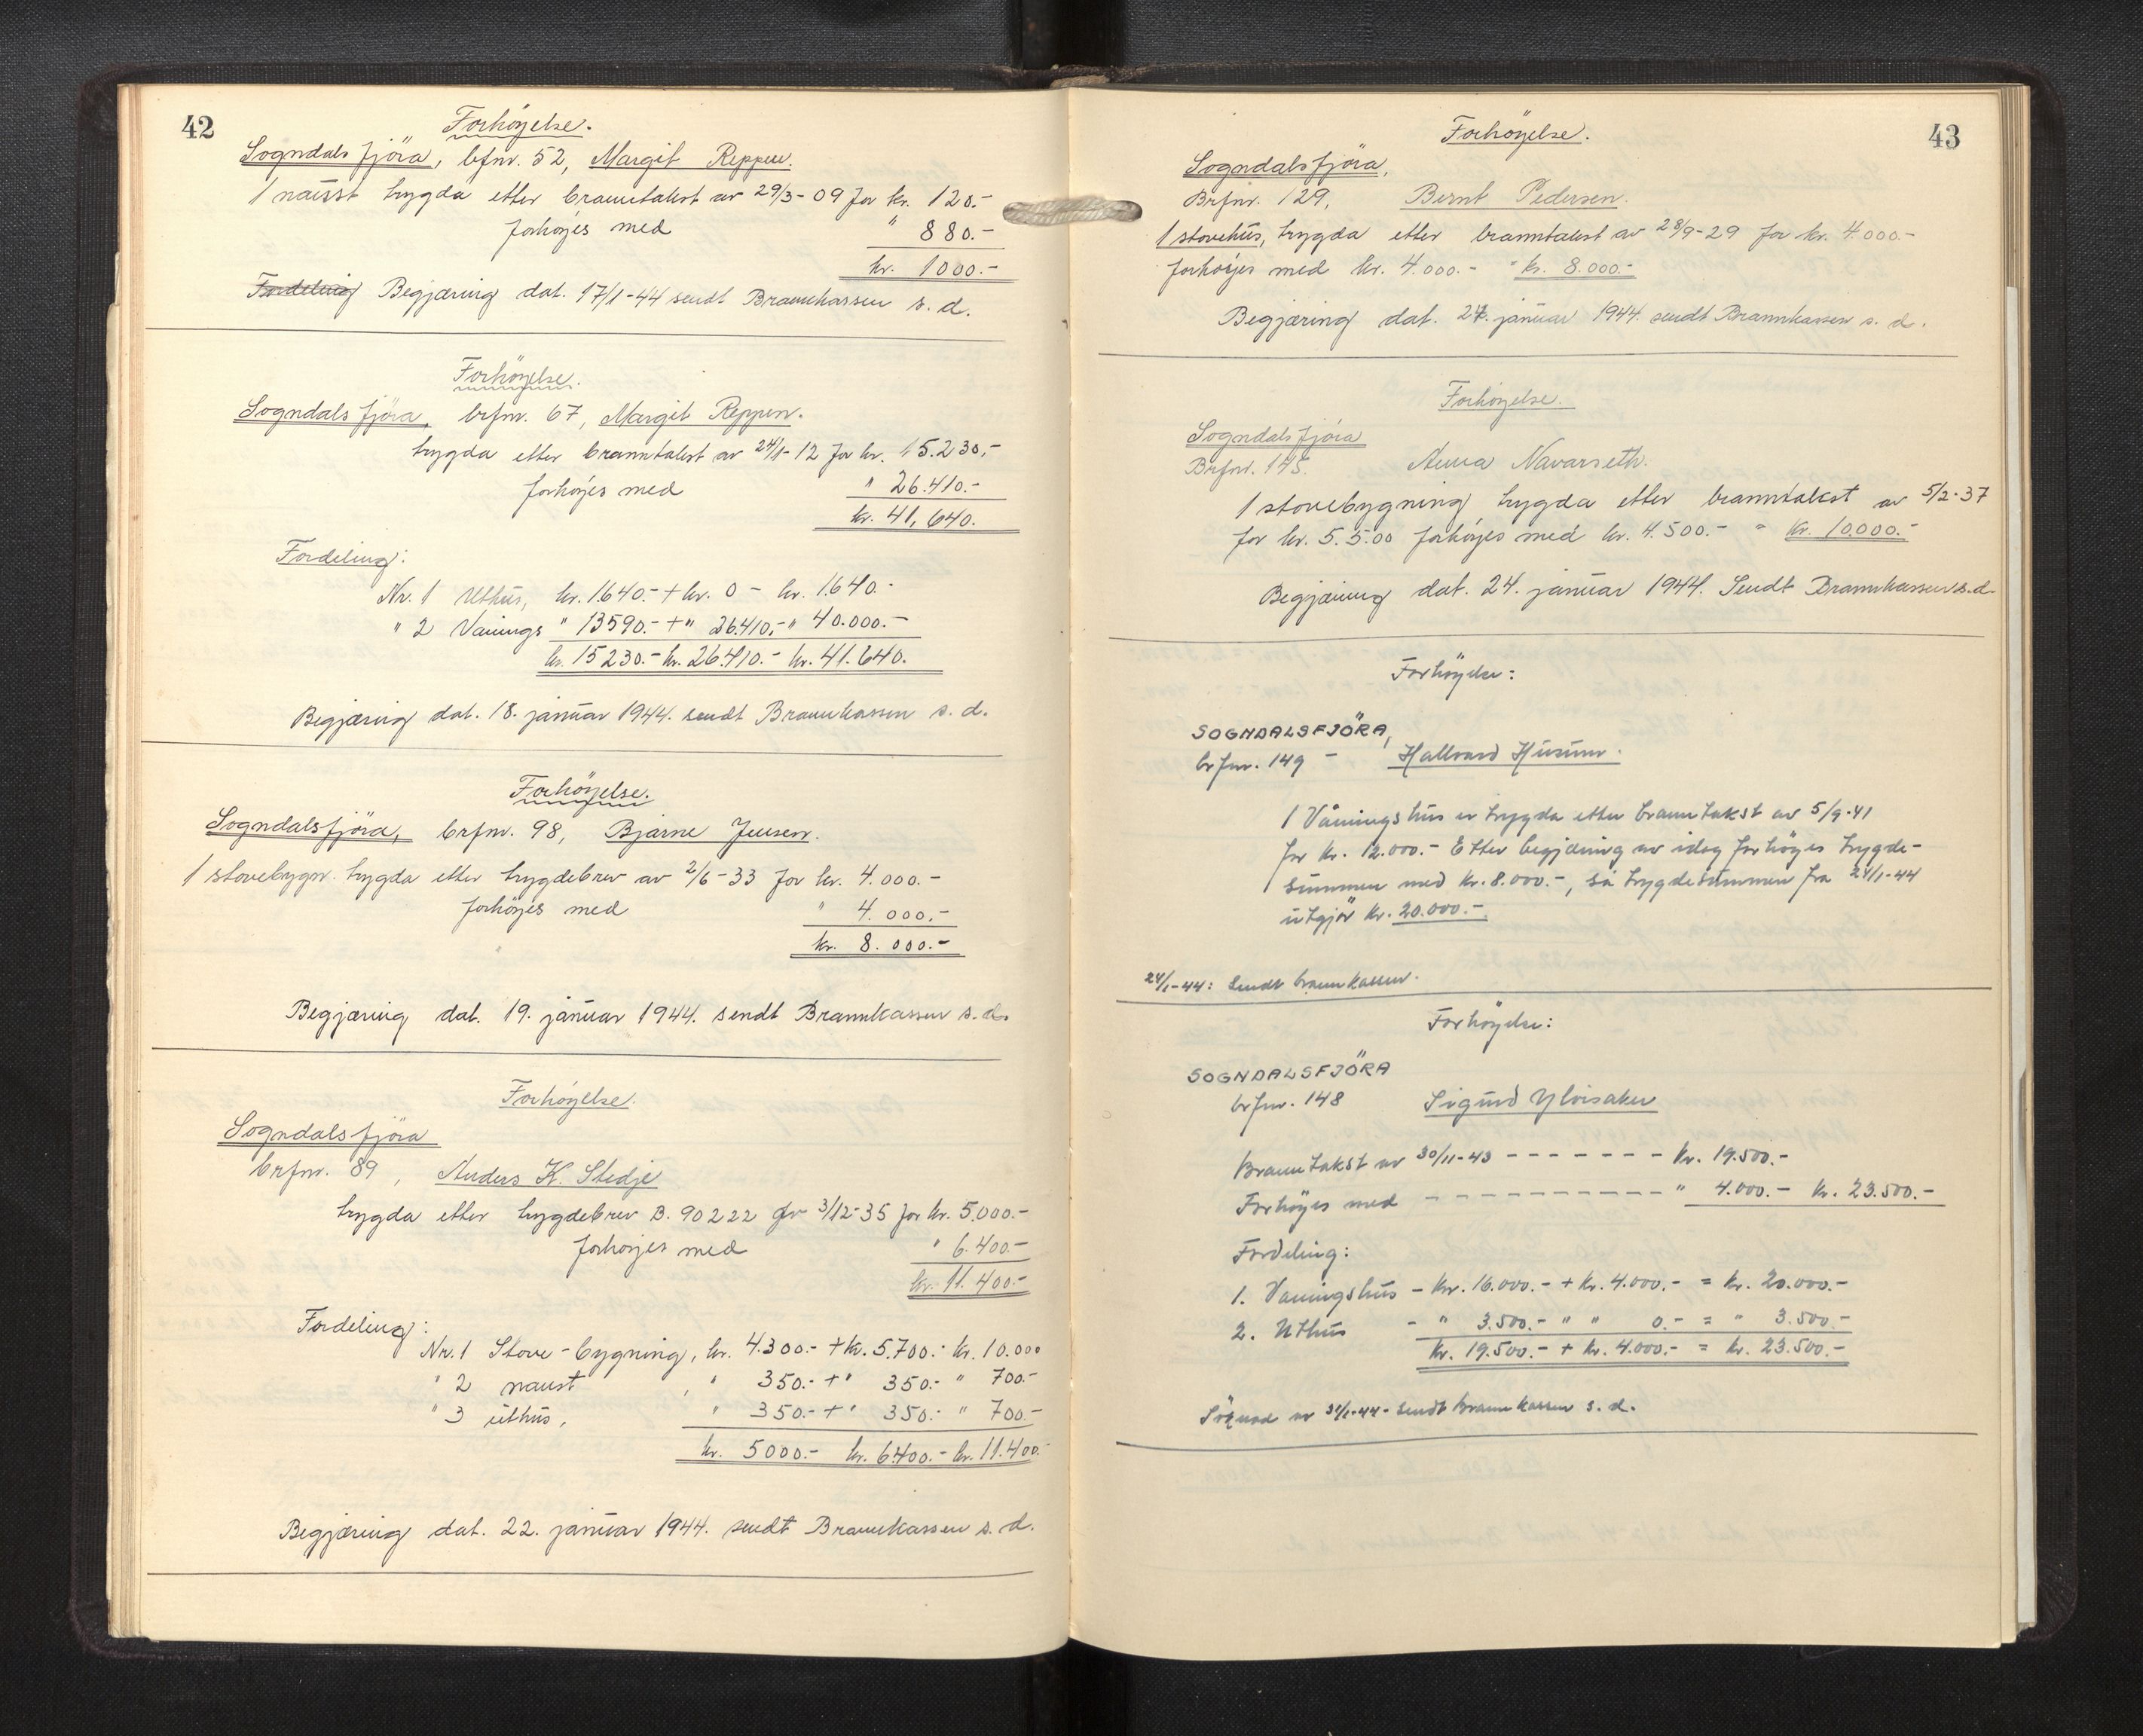 42
Forhöyelse.
Sogndalsfjöra, brfnr. 52, Margit Reppen.
1 naust trygda etter branntakst av 29/3-09 for kr. 120.-
forhöyes med " 880.-
kr. 1000.-
Fordeling Begjæring dat. 17/1-44 sendt Brannkassen s. d.
Forhöyelse.
Sogndalsfjöra, brfnr. 67, Margit Reppen.
trygda etter branntakst av 24/1-12 for kr. 15.230,-
forhöyes med " 26.410.-
kr. 41,640.
Fordeling:
Nr. 1 Uthus, kr. 1640.- + kr. 0 - kr. 1.640.-
" 2 Vånings " 13590.- + " 26.410,- " 40.000.-
kr. 15230.- kr. 26.410.- kr. 41.640.
Begjæring dat. 18. januar 1944. sendt Brannkassen s. d.
Forhöyelse.
Sogndalsfjöra, brfnr. 98, Bjarne Jensen.
1 stovebygn. trygda etter trygdebrev av 2/6-33 for kr. 4.000.-
forhöyes med " 4.000.-
kr. 8.000.-
Begjæring dat. 19. januar 1944. sendt Brannkassen s. d.
Forhöyelse.
Sogndalsfjöra
brfnr. 89, Anders K. Stedje
trygda etter trygdebrev B. 90222 av 3/12-35 for kr. 5.000.-
forhöyes med " 6.400.-
kr. 11.400.-
Fordeling:
Nr. 1 Stove-bygning, kr. 4.300.- + kr. 5.700.- kr. 10.000
" 2 naust, " 350.- + " 350.- " 700.-
" 3 uthus, " 350.- + " 350.- " 700.-
kr. 5000.- kr. 6.400.- kr. 11.400.-
Begjæring dat. 22. januar 1944. sendt Brannkassen s. d.
43
Forhöyelse.
Sogndalsfjöra,
Brfnr. 129, Bernt Pedersen.
1 stovehus, trygda etter branntakst av 28/9-29 for kr. 4.000.-
forhöyes med kr. 4.000.- = kr. 8.000.-
Begjæring dat. 24. januar 1944. sendt Brannkassen s. d.
Forhöyelse.
Sogndalsfjöra
Brfnr. 145. Anna Navarseth.
1 stovebygning trygda etter branntakst av 5/2-37
for kr. 5.500 forhöyes med kr. 4.500.- = kr. 10.000.-
Begjæring dat. 24. januar 1944. Sendt Brannkassen s.d.
Forhöyelse:
SOGNDALSFJÖRA,
brfnr. 149 - Hallvard Husum.
1 Våningshus er trygda etter branntakst av 5/9-41
for kr. 12.000.- Etter begjæring av idag forhöyes trygde-
summen med kr. 8.000.-, så trygdesummen fra 24/1-44
utgjör kr. 20.000.-.
24/1-44: Sendt brannkassen.
Forhöyelse:
SOGNDALSFJÖRA
brfnr. 148 Sigurd Ylvisaker
Branntakst av 30/11-43 - - - - - - - kr. 19.500.-
Forhöyes med - - - - - - - - - - - " 4.000.- kr. 23.500.-
Fordeling:
1. Våningshus - kr. 16.000.- + kr. 4.000.- = kr. 20.000.-
2. Uthus - " 3.500.- " " 0.- = " 3.500.-
kr. 19.500.- + kr. 4.000.- = kr. 23.500.-
Söknad av 31/1-44 - sendt brannkassen s. d.